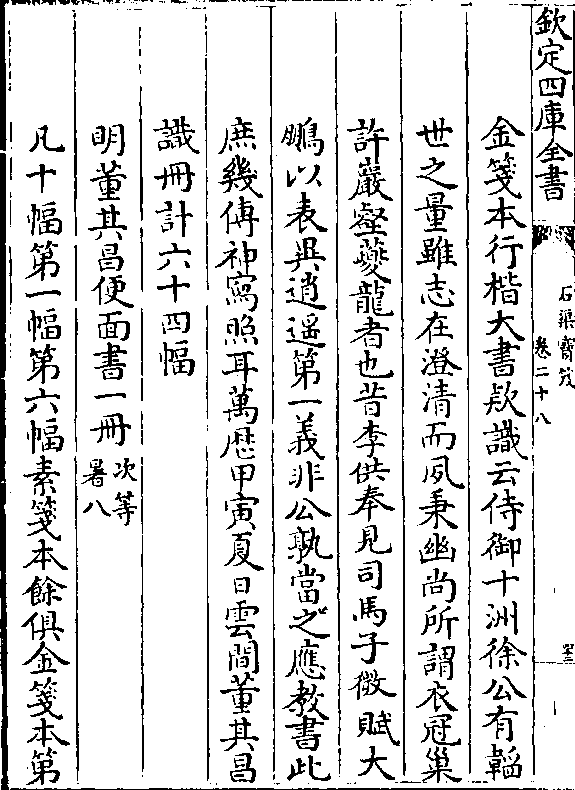 欽定四庫全書
石渠寳笈
卷二十八
金箋本行楷大書款識云侍御十洲徐公有韜
世之量雖志在澄清而夙秉幽尚所謂衣冠巢
許巖壑夔龍者也昔李供奉見司馬子微賦大
鵬以表異逍遥第一義非公孰當之應教書此
庶幾傳神寫照耳萬歴甲寅夏日雲間董其昌
識冊計六十四幅
明董其昌便面書一冊 次等署八
凡十幅第一幅第六幅素箋本餘俱金箋本第